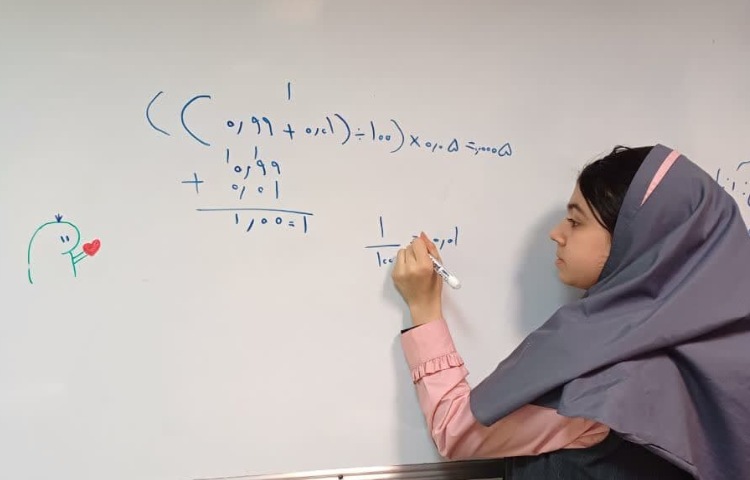 ۱
((۰,۹۹ + ۰,۰۱) ÷ ۱۰۰) × ۰,۰۵ = ۰,۰۰۰۵
۱ ۱
۰,۹۹
+ ۰,۰۱
۱,۰۰ = ۱
۱
= ۰,۰۱
۱۰۰